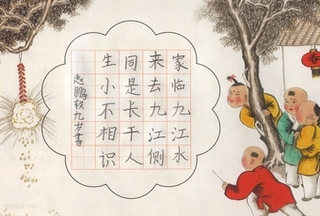 家临九江水
来去九江侧
同是长干人
生小不相识
赵鹏权九岁书
春